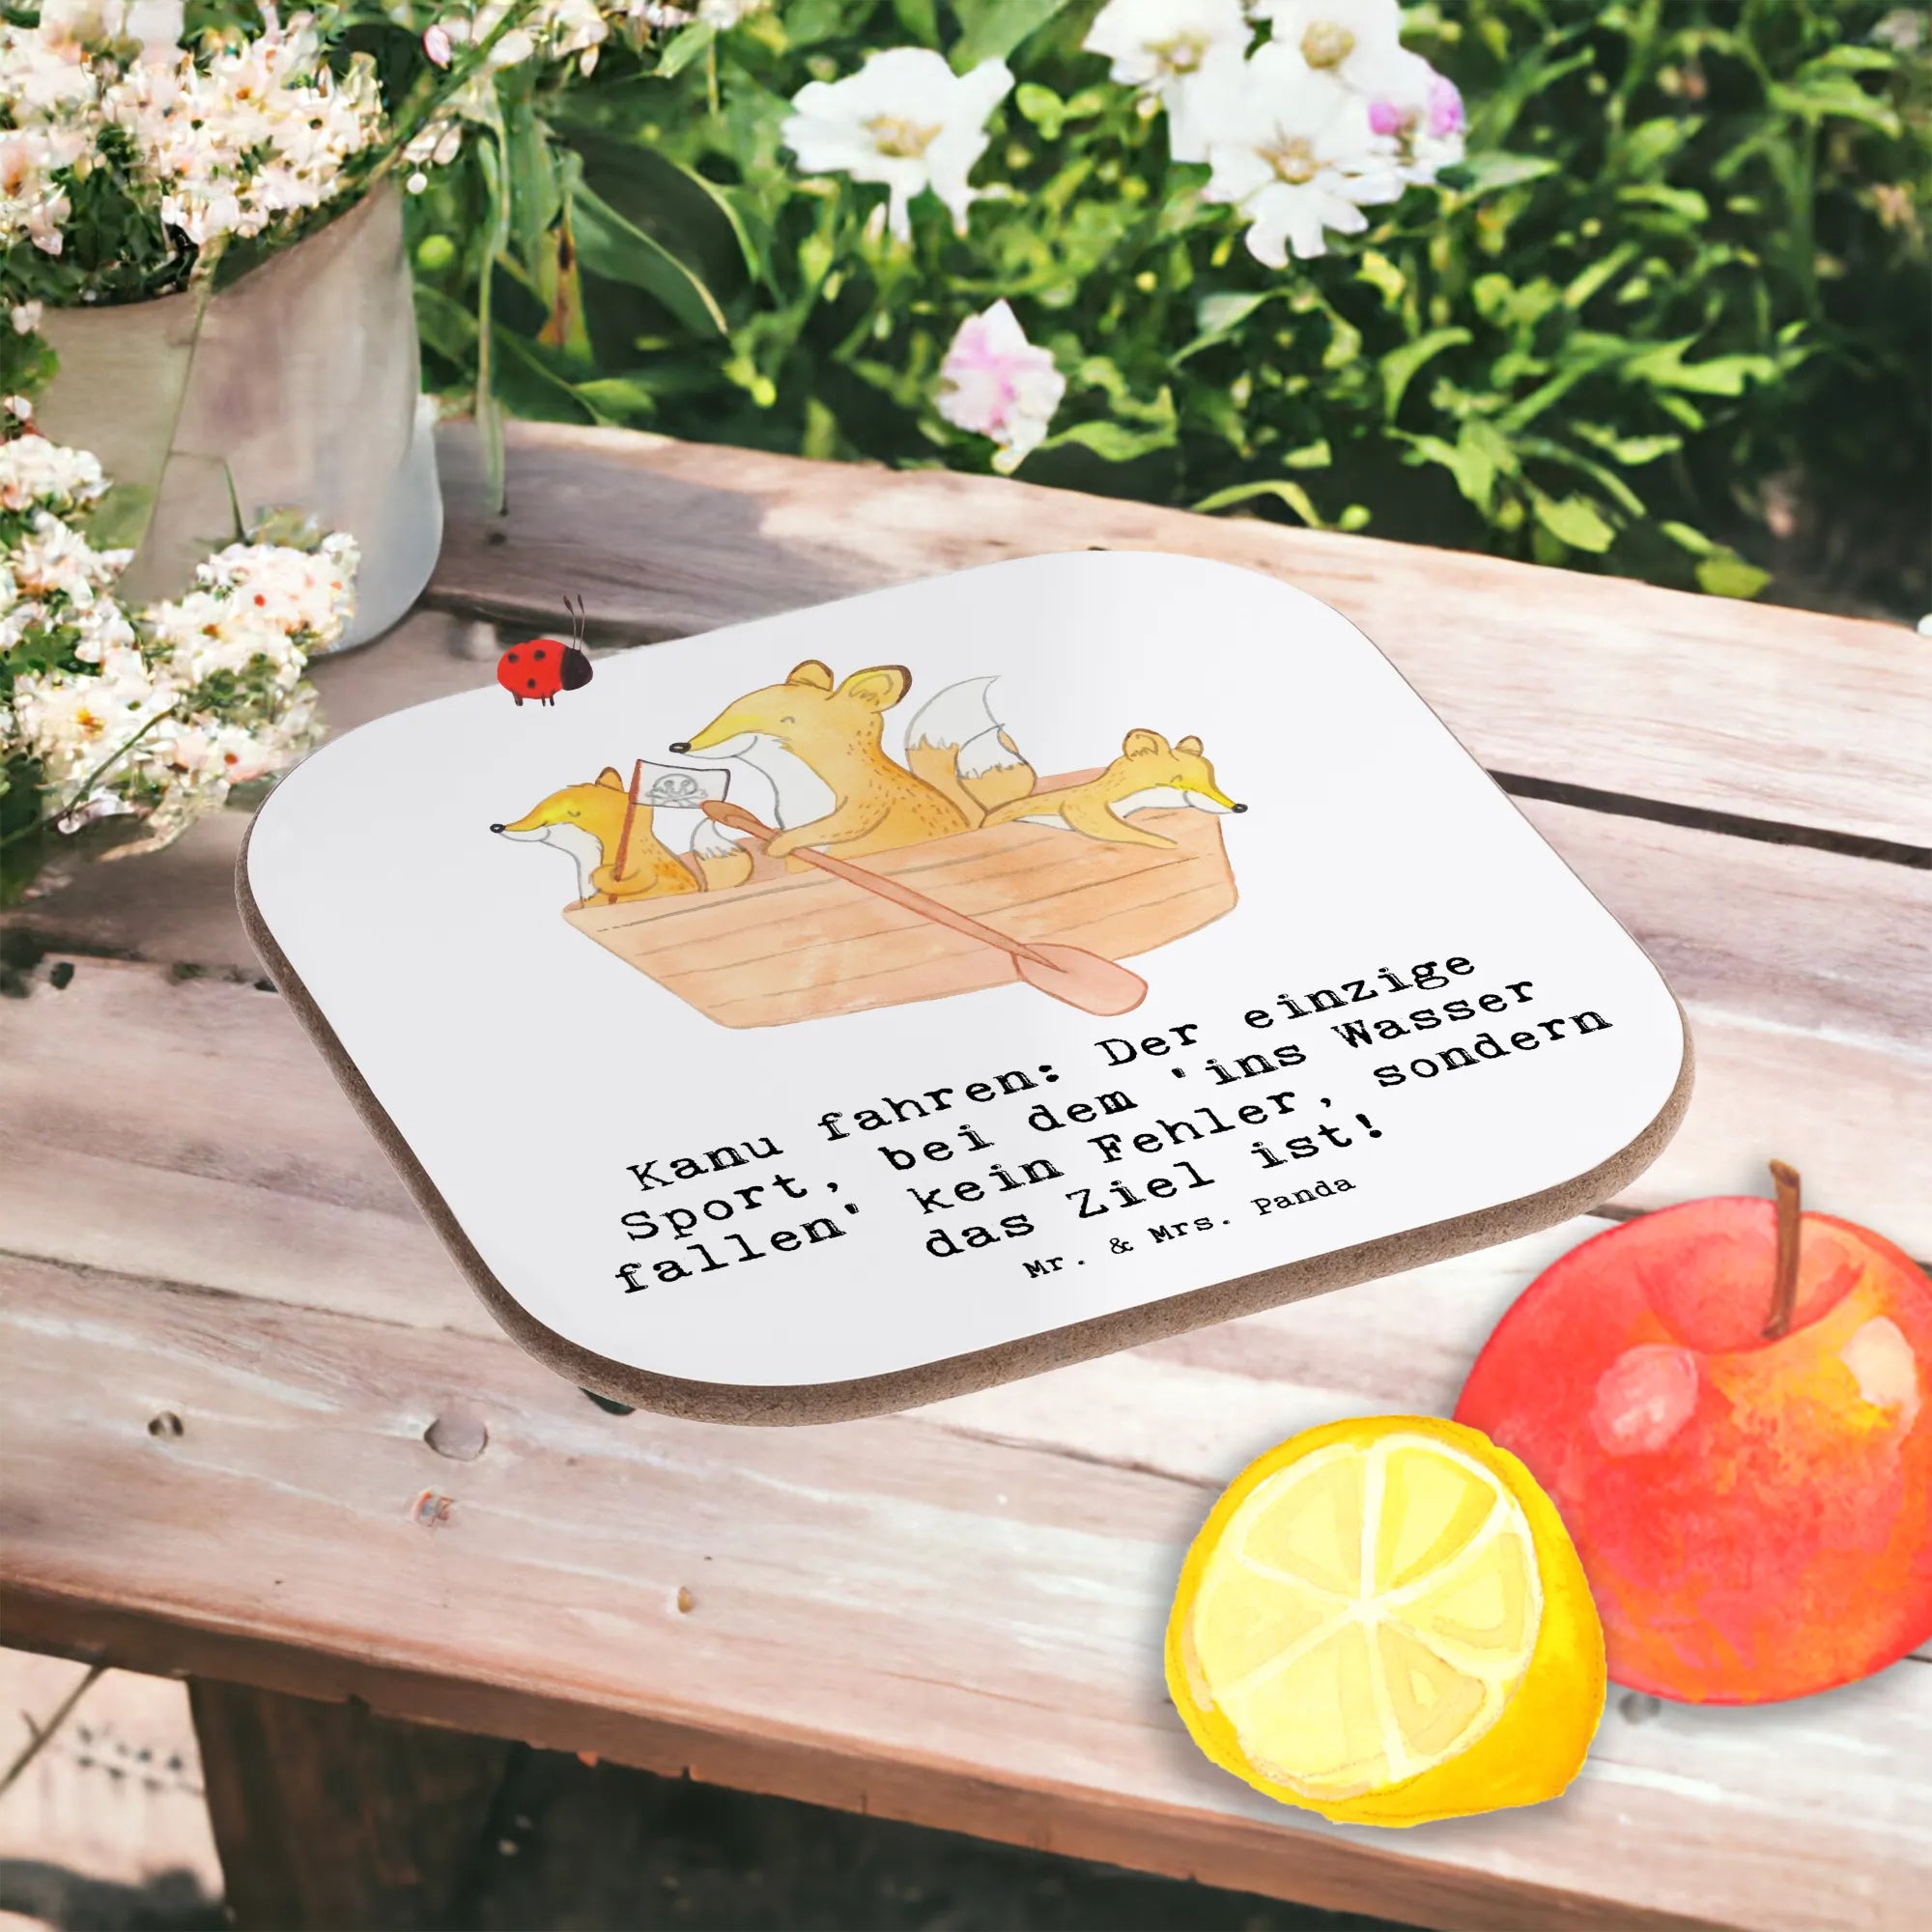 Kanu fahren: Der einzige
Sport, bei dem 'ins Wasser
fallen' kein Fehler, sondern
das Ziel ist!
Mr. & Mrs. Panda